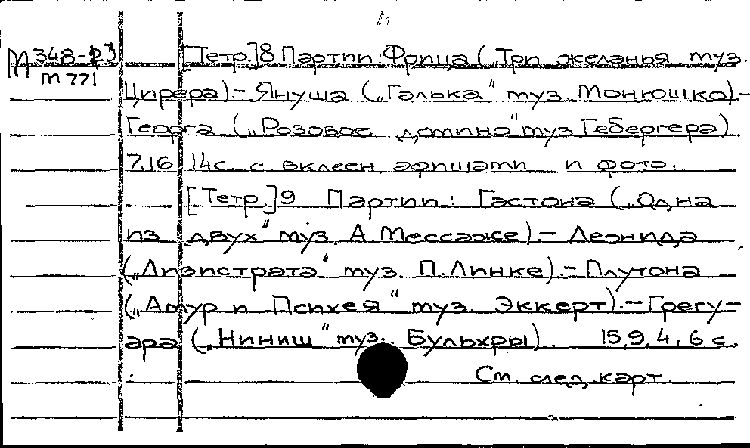 М 348-РЗ [Тетр.] 8 Партии Фрица ("Три желания" муз.
М 771
Цирера) – Януша ("Галька" муз. Монюшко) –
Георга ("Розовое домино" муз. Гебергера)
7,16 14 с. с вклеен афишами и фото.
[Тетр.] 9 Партии: Гастона ("Одна
из двух" муз. А. Мессаже). – Леонида
("Лизистрата" муз. П. Линке). – Плутона
("Амур и Психея" муз. Эккерт). – Грегу-
ара ("Ниниш" муз. Бульхры). 15,9,4,6 с.
См. след. карт.